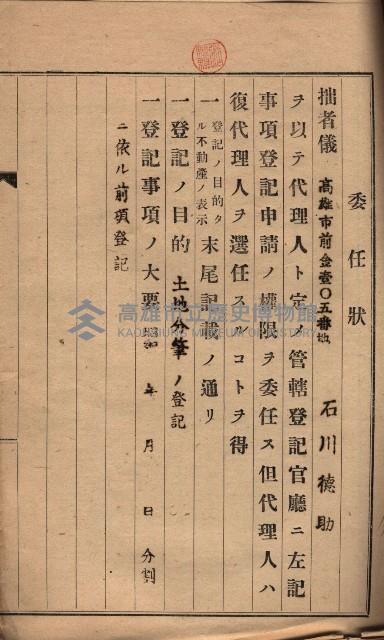 委任狀
拙者儀 高雄市前金壹〇五番地 石川德助
ヲ以テ代理人ト定メ管轄登記官廳ニ左記
事項登記申請ノ權限ヲ委任ス但代理人ハ
復代理人ヲ選任スルコトヲ得
一 登記ノ目的タル不動產ノ表示 末尾記載ノ通リ
一 登記ノ目的 土地分筆ノ登記
一 登記事項ノ大要 昭和 年 月 日 分割
ニ依ル前項登記
高雄市立歷史博物館
KAOHSIUNG MUSEUM OF HISTORY